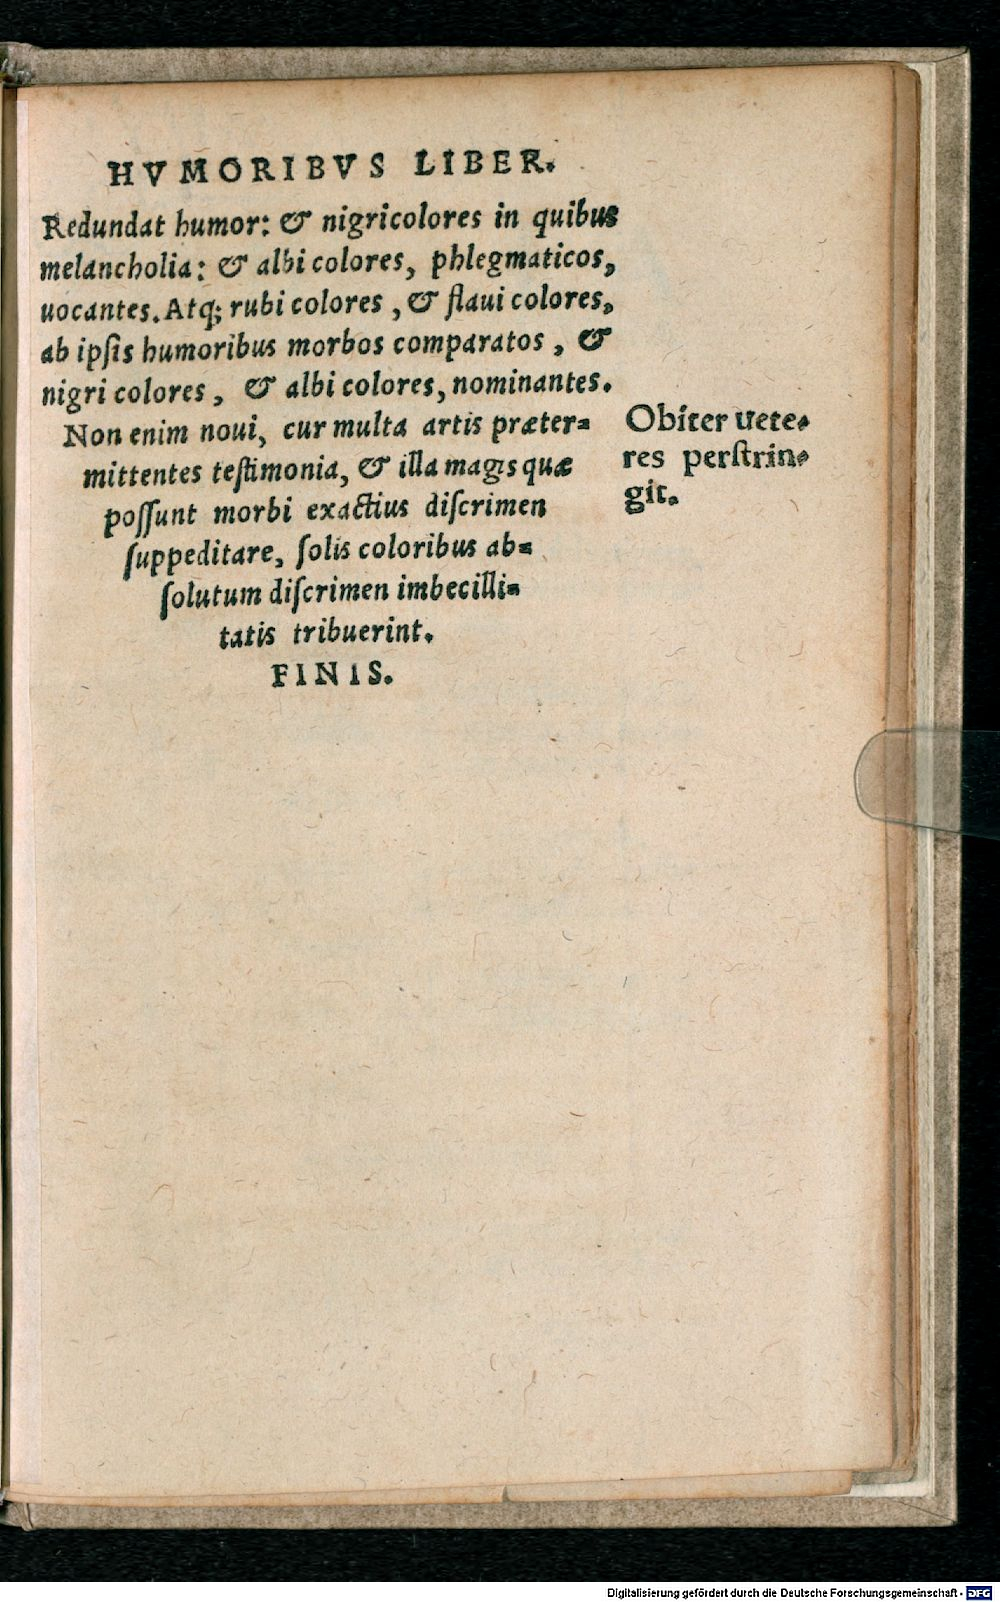 HVMORIBVS LIBER.
Redundat humor: & nigricolores in quibus
melancholia: & albi colores, phlegmaticos,
uocantes. Atq; rubi colores, & flaui colores,
ab ipſis humoribus morbos comparatos, &
nigri colores, & albi colores, nominantes.
Non enim noui, cur multa artis præter-
mittentes teſtimonia, & illa magis quæ
poſſunt morbi exactius diſcrimen
ſuppeditare, ſolis coloribus ab-
ſolutum diſcrimen imbecilli-
tatis tribuerint.
FINIS.
Obiter uete-
res perſtrin-
git.
Digitalisierung gefördert durch die Deutsche Forschungsgemeinschaft - DFG